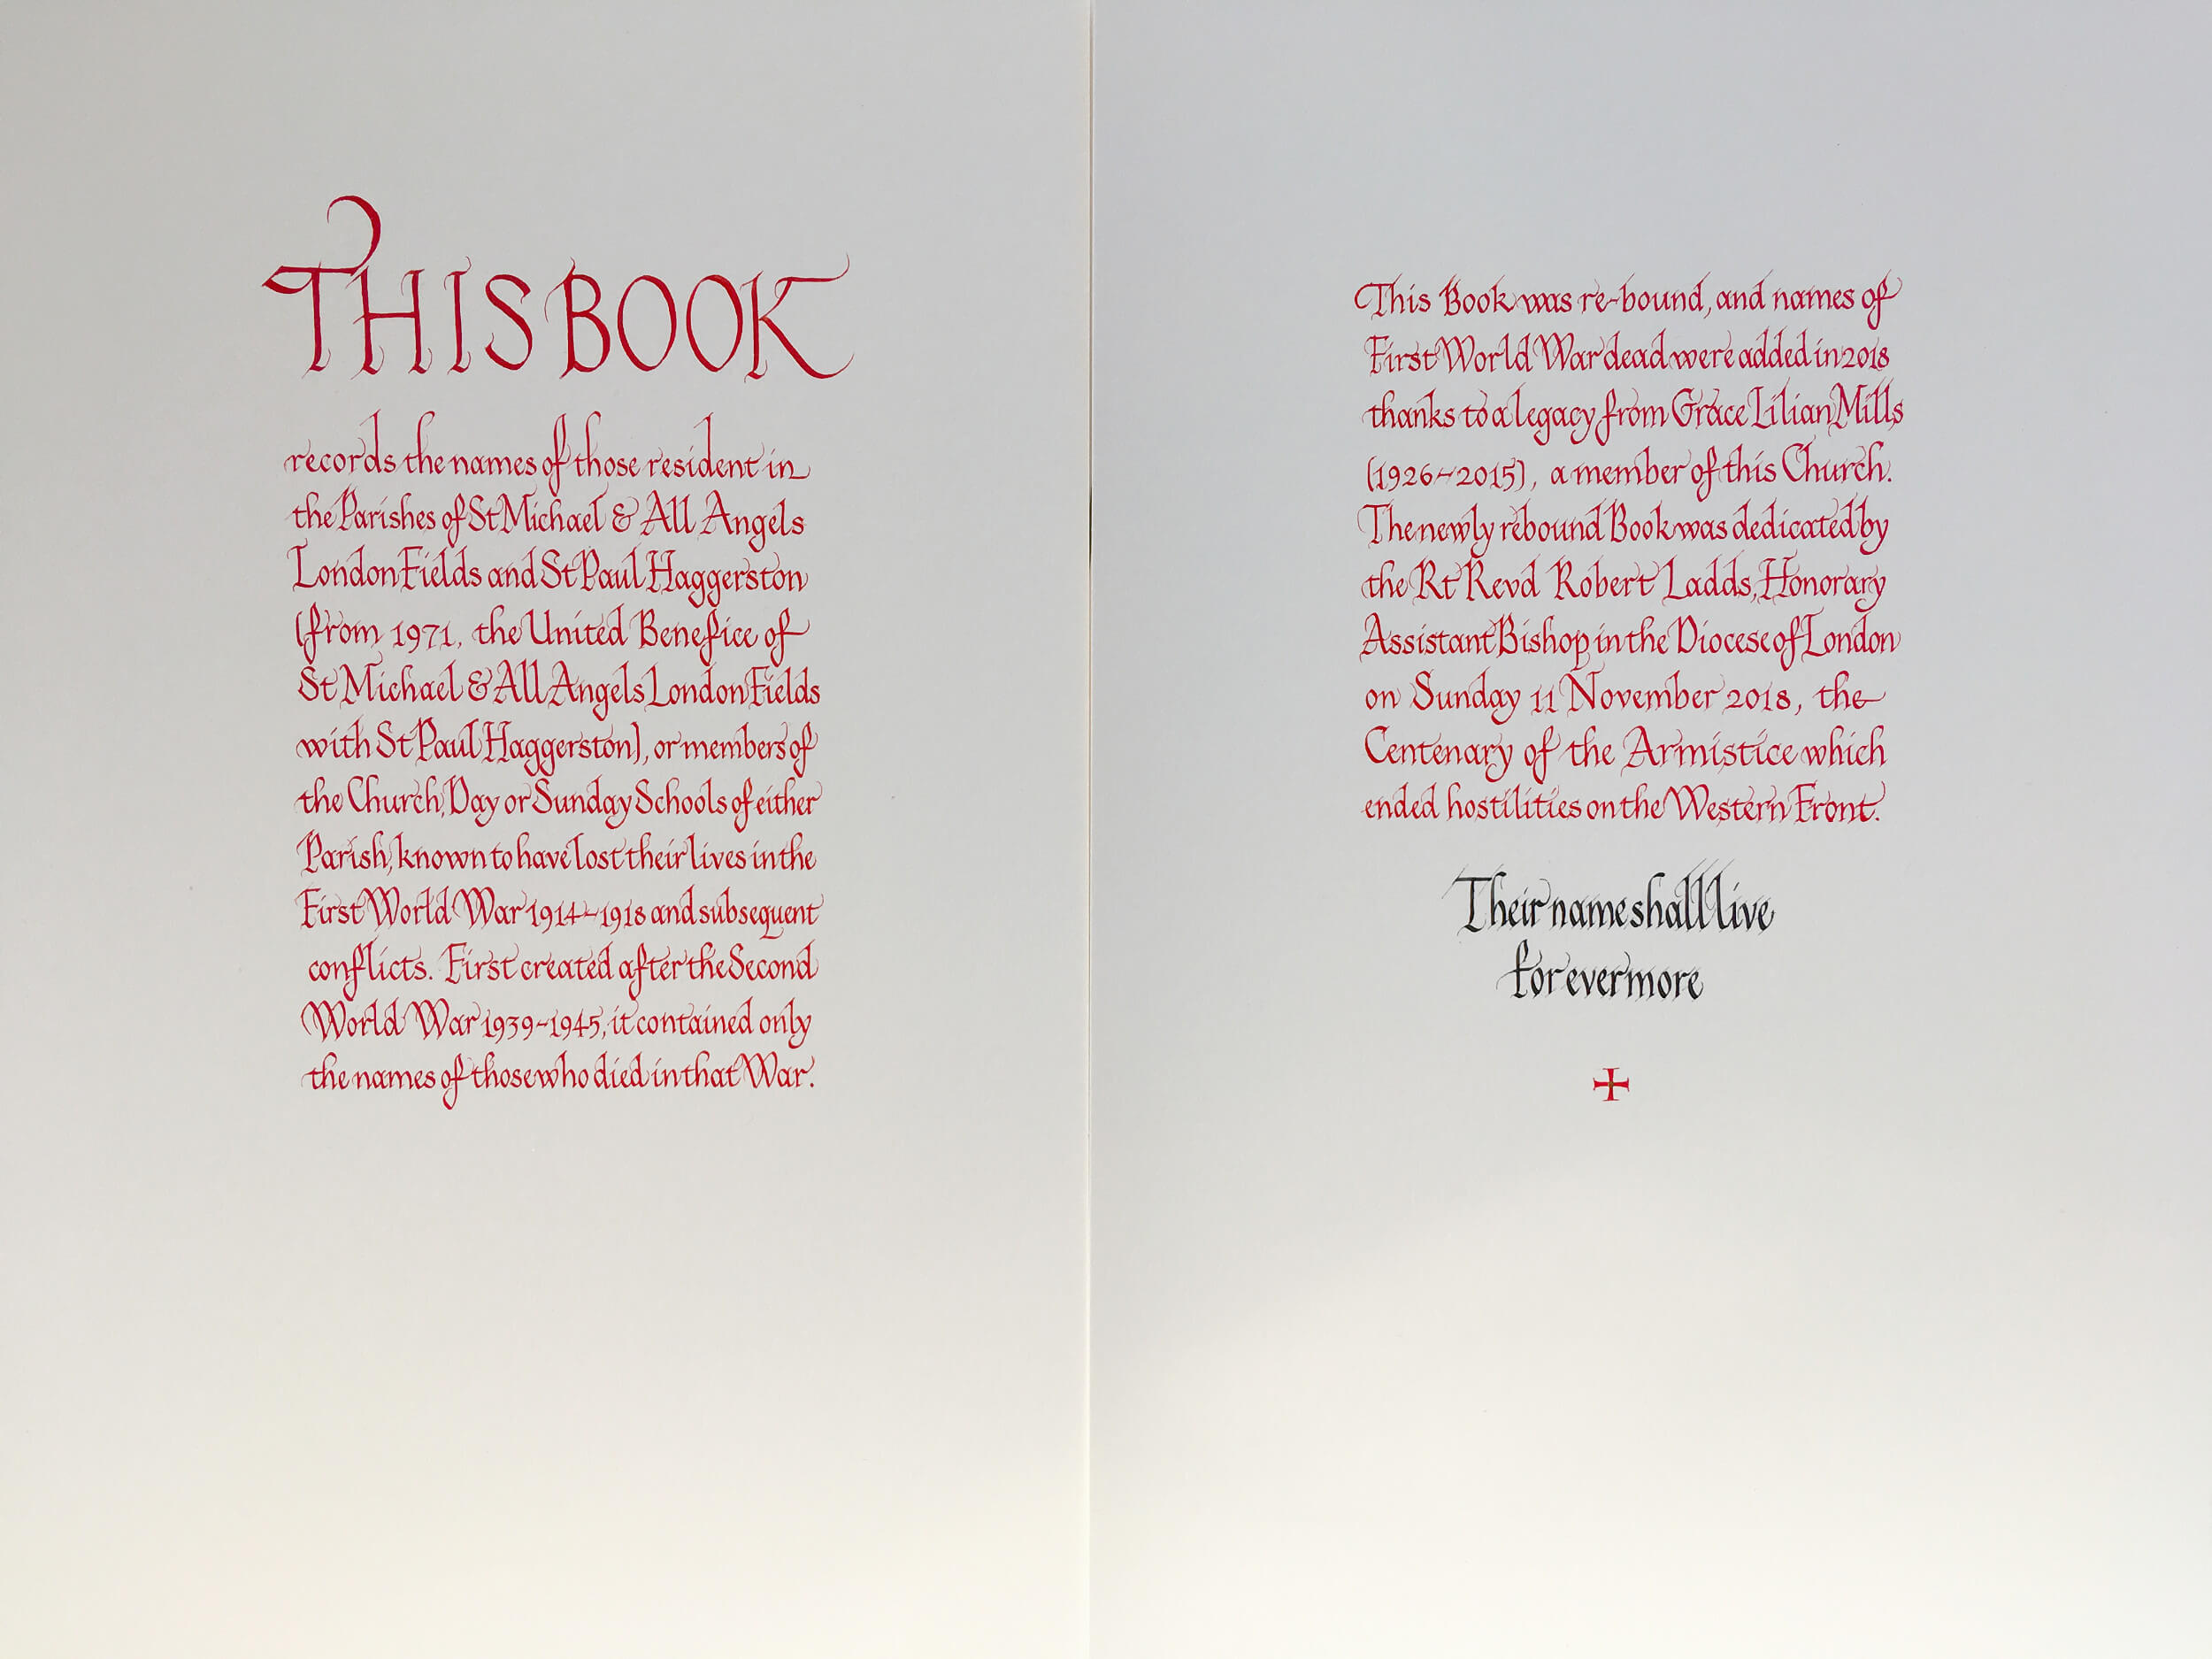 THIS BOOK
records the names of those resident in
the Parishes of St Michael & All Angels
London Fields and St Paul Haggerston
(from 1971, the United Benefice of
St Michael & All Angels London Fields
with St Paul Haggerston), or members of
the Church, Day or Sunday Schools of either
Parish, known to have lost their lives in the
First World War 1914-1918 and subsequent
conflicts. First created after the Second
World War 1939-1945, it contained only
the names of those who died in that War.
This Book was re-bound, and names of
First World War dead were added in 2018
thanks to a legacy from Grace Lilian Mills
(1926-2015), a member of this Church.
The newly rebound Book was dedicated by
the Rt Revd Robert Ladds, Honorary
Assistant Bishop in the Diocese of London
on Sunday 11 November 2018, the
Centenary of the Armistice which
ended hostilities on the Western Front.
Their name shall live
for evermore